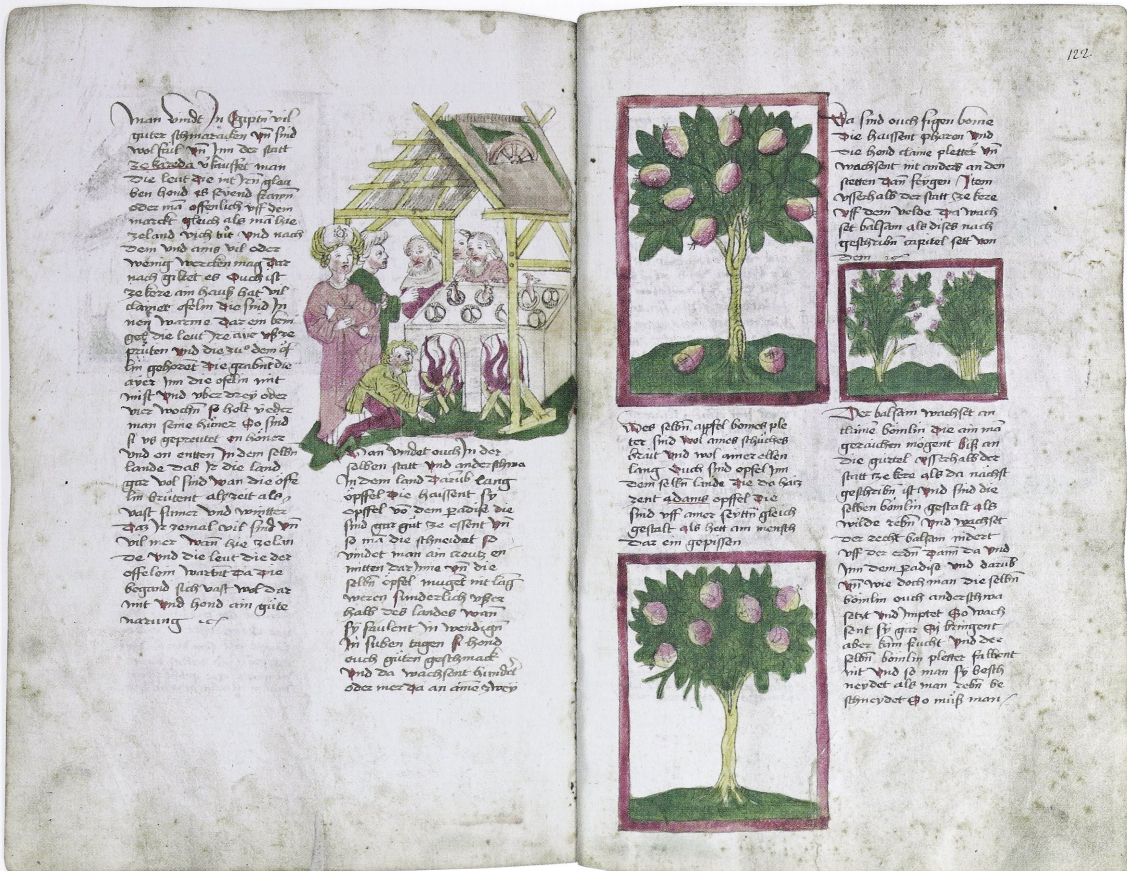 man vindt In Egiptn vil
guter schmaracken vn̄ sind
wol fail vn̄ Inn der statt
ze karoda v̄kauffet man
die leut die nit
ben hond es seyend frawn
oder mā offenlich vff dem
marckt gleich als mā hie
ze land vich tut vnd nach
dem vnd ains vil oder
wenig wercken mag dar
nach giltet es Ouch ist
ze kere ain hauß hat vil
clainer ofelin die sind In
nen warme dar ein brin
get die leut Ire aire vß ze
prüten vnd die zuͦ dem
lin gehoret die grabnt die
ayer Inn die ofelin mit
mist vnd vber drey oder
vier wochn̄ so holt yeder
man seine hüner So sind
si vs geprutet en hüner
vnd on entten In dem selbn
lande das Ir die land
gar vol sind wan die offe
lin brütent alzeit als
vast sumer vnd wintter
Das Ir zemal vil sind vn̄
vil mer wan hie ze lan
de vnd die leut die der
offelein wartet da die
begand sich vast wol dar
mit vnd hond ain güte
narung
Man vindet ouch In der
selben statt vnd anderschwa
In dem land darūb lang
öpffel die haissent sy
öpffel vō dem padise die
sind gar gut ze essent vn̄
so mā die schneidet so
vindet man ain creutz en
mitten dar Inne vn̄ die
selbn̄ öpfel muget nit lāg
weren sunderlich vsser
halb des landes wan
sy faulent In wendign̄
In suben tagen si hond
ouch guten geschmack
vnd da wachsent hundert
oder mer da an aine zwey
122
Des selbn̄ apffel bomes ple
ter sind wol aines schuches
brait vnd wol ainer ellen
lang Ouch sind öpfel Im
dem selbn̄ lande die da hais
zent adams öpffel die
sind vff ainer seyttn̄ gleich
gestalt als hett ain mensch
dar ein gepissen
Da sind ouch figen bome
die haissent pharon vnd
die hond claine pletter vn̄
wachsent nit anders an den
stetten dan̄ feygen Item
vsserhalb der statt ze kere
vff dem velde da wach
set balsam als dises nach
geschribn̄ capitel sett von
dem
Der balsam wachset an
klaine bömlin die ain mā
geraichen mögent biß an
die gürtel vsserhalb der
statt ze kere als da nächst
geschribn̄ ist vnd sind die
selben bömlin gestalt als
wilde rebn̄ vnd wachset
der recht balsam nidert
vff der erdn̄ dann da vnd
Im dem padise vnd darūb
vn̄ wie doch man die selbn̄
bömlin ouch anderschwa
setzt vnd Impfet So wach
sent sy gar Si bringent
aber kain frucht vnd der
selbn̄ bömlin pletter fallent
nit vnd so man sy besch
neydet als man rebn̄ be
schneydet So müß man